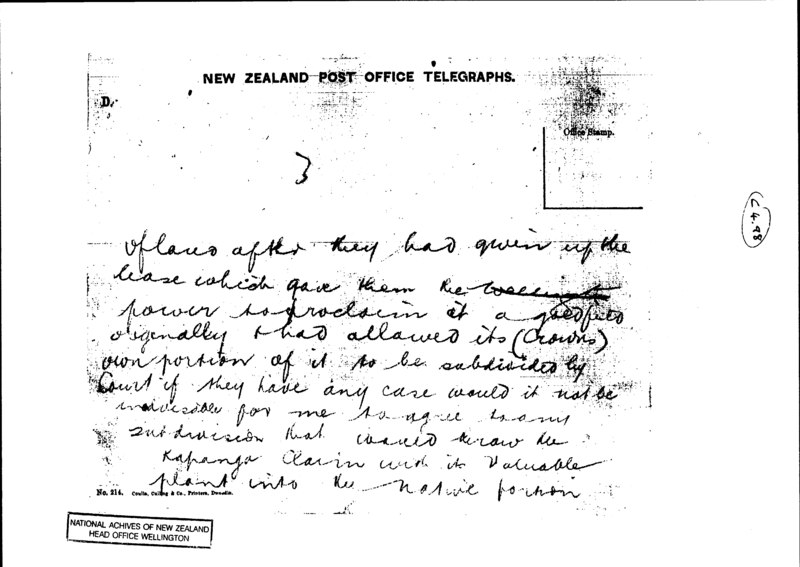 NEW ZEALAND POST OFFICE TELEGRAPHS.
D.
Office Stamp.
3
C 4.98
of land after they had given up the
lease which gave them the
power to proclaim it a goldfield
originally & had allowed its (Crowns)
own portion of it to be subdivided by
Court if they have any case would it not be
inadvisable for me to agree to any
subdivision that would throw the
Kapanga Claim with its Valuable
plant into the Native portion
No. 214. Coulls, Culling & Co., Printers, Dunedin.
NATIONAL ACHIVES OF NEW ZEALAND
HEAD OFFICE WELLINGTON